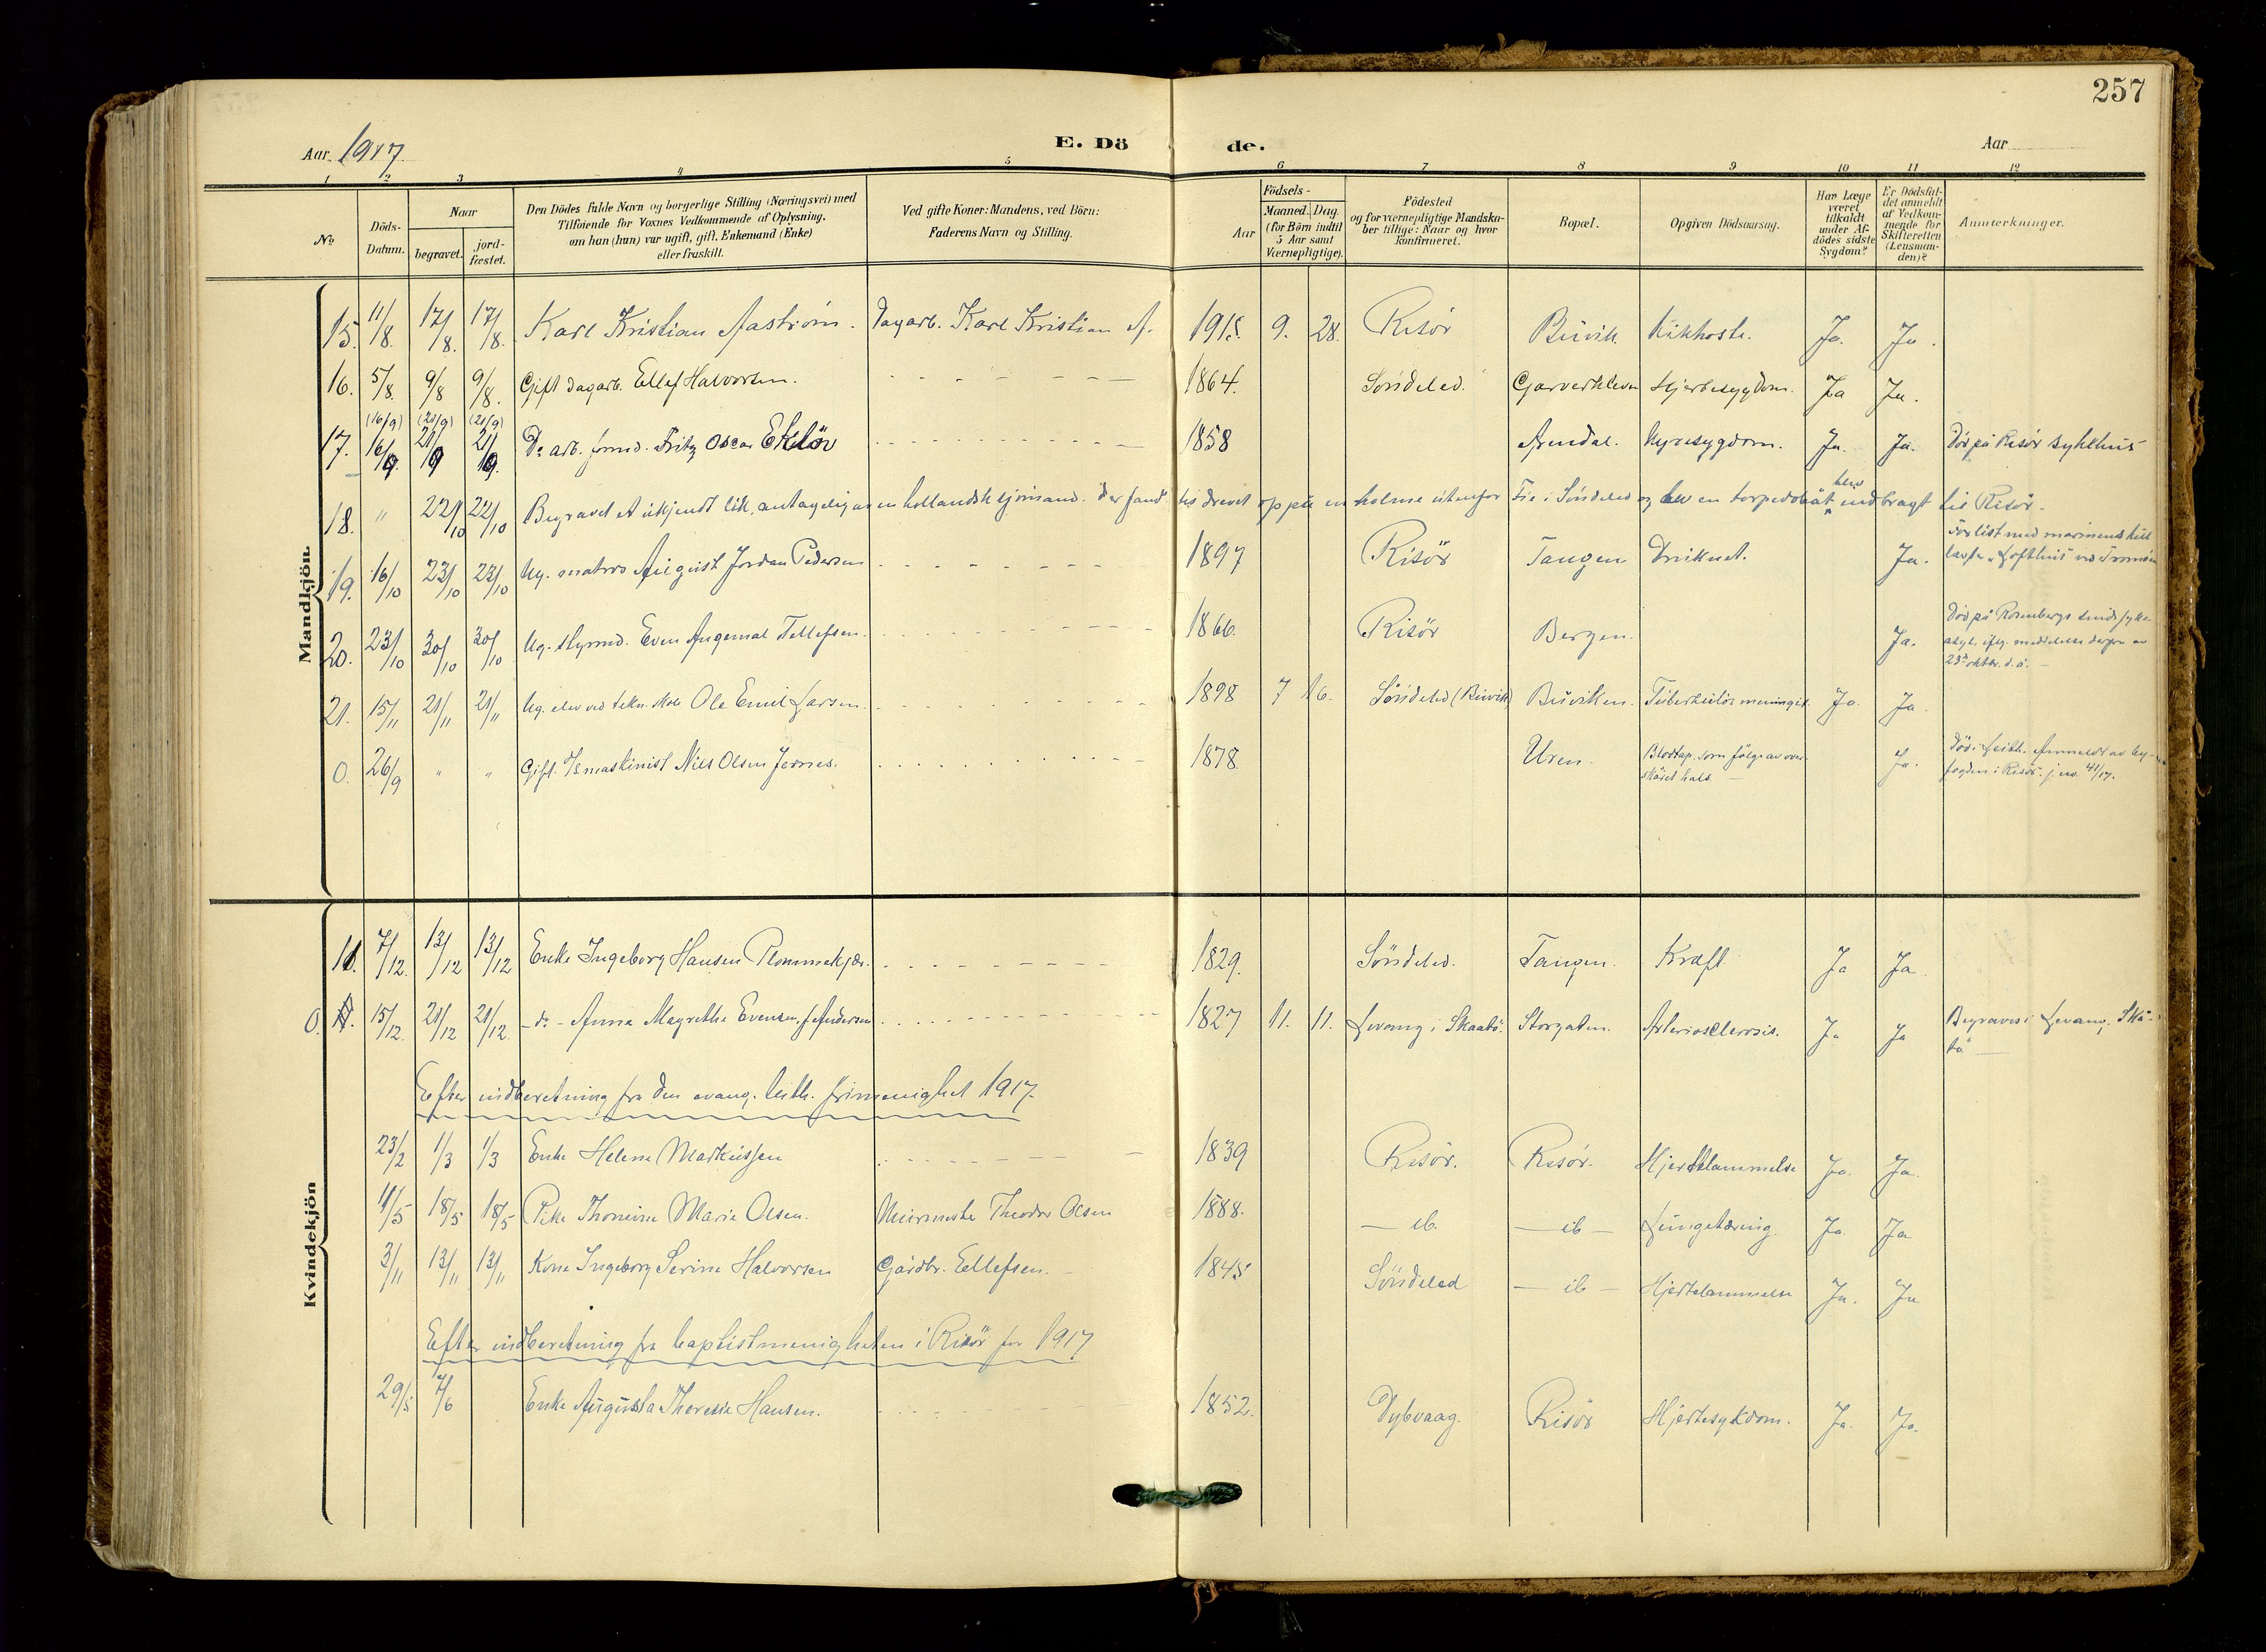 257
Aar 1917
E. Dö
de.
Aar
1 2 3 4 5 6 7 8 9 10 11 12
No
Döds-Datum.
Naar
begravet.
jord-fæstet.
Den Dödes fulde Navn og borgerlige Stilling (Næringsvei) med
Tilföiende for Voxnes Vedkommende af Oplysning,
om han (hun) var ugift, gift, Enkemand (Enke)
eller fraskilt.
Ved gifte Koner: Mandens, ved Börn:
Faderens Navn og Stilling.
Aar
Födsels-
Maaned. Dag
(for Börn indtil
5 Aar samt
Værnepligtige).
Födested
og for værnepligtige Mandska-
ber tillige: Naar og hvor
konfirmeret.
Bopæl.
Opgiven Dödsaarsag.
Har Læge
været
tilkaldt
under Af-
dödes sidste
Sygdom?
Er Dödsfal-
det anmeldt
af Vedkom-
mende for
Skifteretten
(Lensman-
den)?
Anmærkninger.
Mandkjön.
15. 11/8. 17/8. 17/8. Karl Kristian Aaström. Dagarb. Karl Kristian A. 1915. 9. 28. Risör Buvik. Kikhoste. Ja. Ja.
16. 5/8. 9/8 9/8. Gift dagarb. Ellef Halvorsen. 1864. Söndeled. Garverkleven Hjertesygdom. Ja Ja.
(16/9) (21/9) (21/9)
17. 16/9. 21/9 21/9. Do. arb. formd. Fritz Oscar Eklöv 1858 Arendal. Nyresygdom. Ja. Ja. Död på Risör sykehus
18. " 22/10 22/10 Begravet et ukjendt lik, antagelig av en hollandsk sjömand. Der fandtes drevet op på en holme utenfor Fie i Söndeled og blev en torpedobåt blev indbragt til Risör.
19. 16/10 23/10 23/10 Ug. matros August Jordan Pedersen 1897 Risör Tangen Druknet. Ja. Forlist med marinens kut
20. 23/10 30/10 30/10 Ug. styrmd. Even Angemal Tellefsen. 1866. Risör Bergen. Ja. Död på Rosenbergs sindssyke-
asyl, iflg. meddelelse derfra av
23de oktbr. d. å.
21. 15/11 21/11 21/11 Ug. elev ved tekn. skole Ole Emil Larsen. 1898 7 16. Söndeled (Buvik) Buviken. Tuberkulös meningit. Ja. Ja.
0. 26/9 " " Gift. maskinist Nils Olsen Jernes. 1878. Uren. Blodtap som fölge av over-
skåret hals. Ja. Död i Leith. Anmeldt av by-
fogden i Risör. j. no. 41/17.
Kvindekjön
11. 7/12. 13/12 13/12 Enke Ingeborg Hansen Plommekjær. 1829. Söndeled. Tangen. Kræft Ja Ja.
0. 15/12. 21/12 21/12. -do.- Anna Magrethe Evensen, f. Andersen 1827 11. 11. Levang i Skaatö. Storgaten. Arteriosclerosis. Ja Ja Begraves i Levang. Skå-
tö
Efter indberetning fra den evang. luth. frimenighet 1917.
23/2 1/3 1/3 Enke Helene Markussen 1839 Risör. Risör. Hjertelammelse Ja. Ja.
11/5 18/5 18/5 Pike Thomine Marie Olsen. Murmester Theodor Olsen 1888. — ib. — ib — Lungetæring. Ja. Ja
3/11 13/11 13/11 Kone Ingeborg Serine Halvorsen Gårdbr. Ellefsen. 1845 Söndeled — ib — Hjertelammelse Ja. Ja
Efter indberetning fra baptistmenigheten i Risör for 1917
29/5 7/6 Enke Augusta Theresie Hansen. 1852. Dybvaag. Risör Hjertesykdom. Ja. Ja.